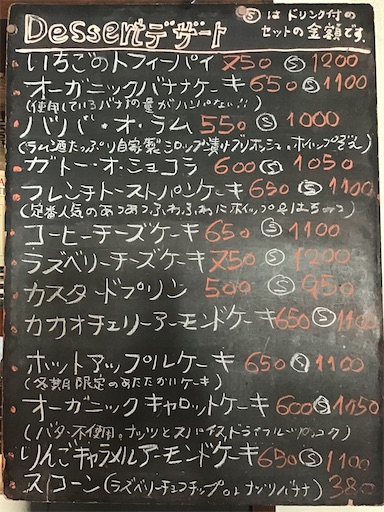 Dessert デザート
Ⓢは ドリンク付の
セットの金額です。
いちごのトフィーパイ 750 Ⓢ 1200
オーガニックバナナケーキ 650 Ⓢ 1100
(使用しているバナナの量がハンパない!!)
ババ・オ・ラム 550 Ⓢ 1000
(ラム酒たっぷり自家製シロップ漬けブリオッシュ、ホイップぞえ)
ガトー・オ・ショコラ 600 Ⓢ 1050
フレンチトーストパンケーキ 650 Ⓢ 1100
(定番人気のあつあつふわふわにホイップ
コーヒーチーズケーキ 650 Ⓢ 1100
ラズベリーチーズケーキ 750 Ⓢ 1200
カスタードプリン 500 Ⓢ 950
カカオチェリーアーモンドケーキ 650 Ⓢ 1100
ホットアップルケーキ 650 Ⓢ 1100
(冬期限定のあたたかいケーキ)
オーガニックキャロットケーキ 600 Ⓢ 1050
(バター不使用。ナッツとスパイス、ドライフルーツ
りんごキャラメルアーモンドケーキ 650 Ⓢ 1100
スコーン(ラズベリーチョコチップ or ナッツバナナ) 380